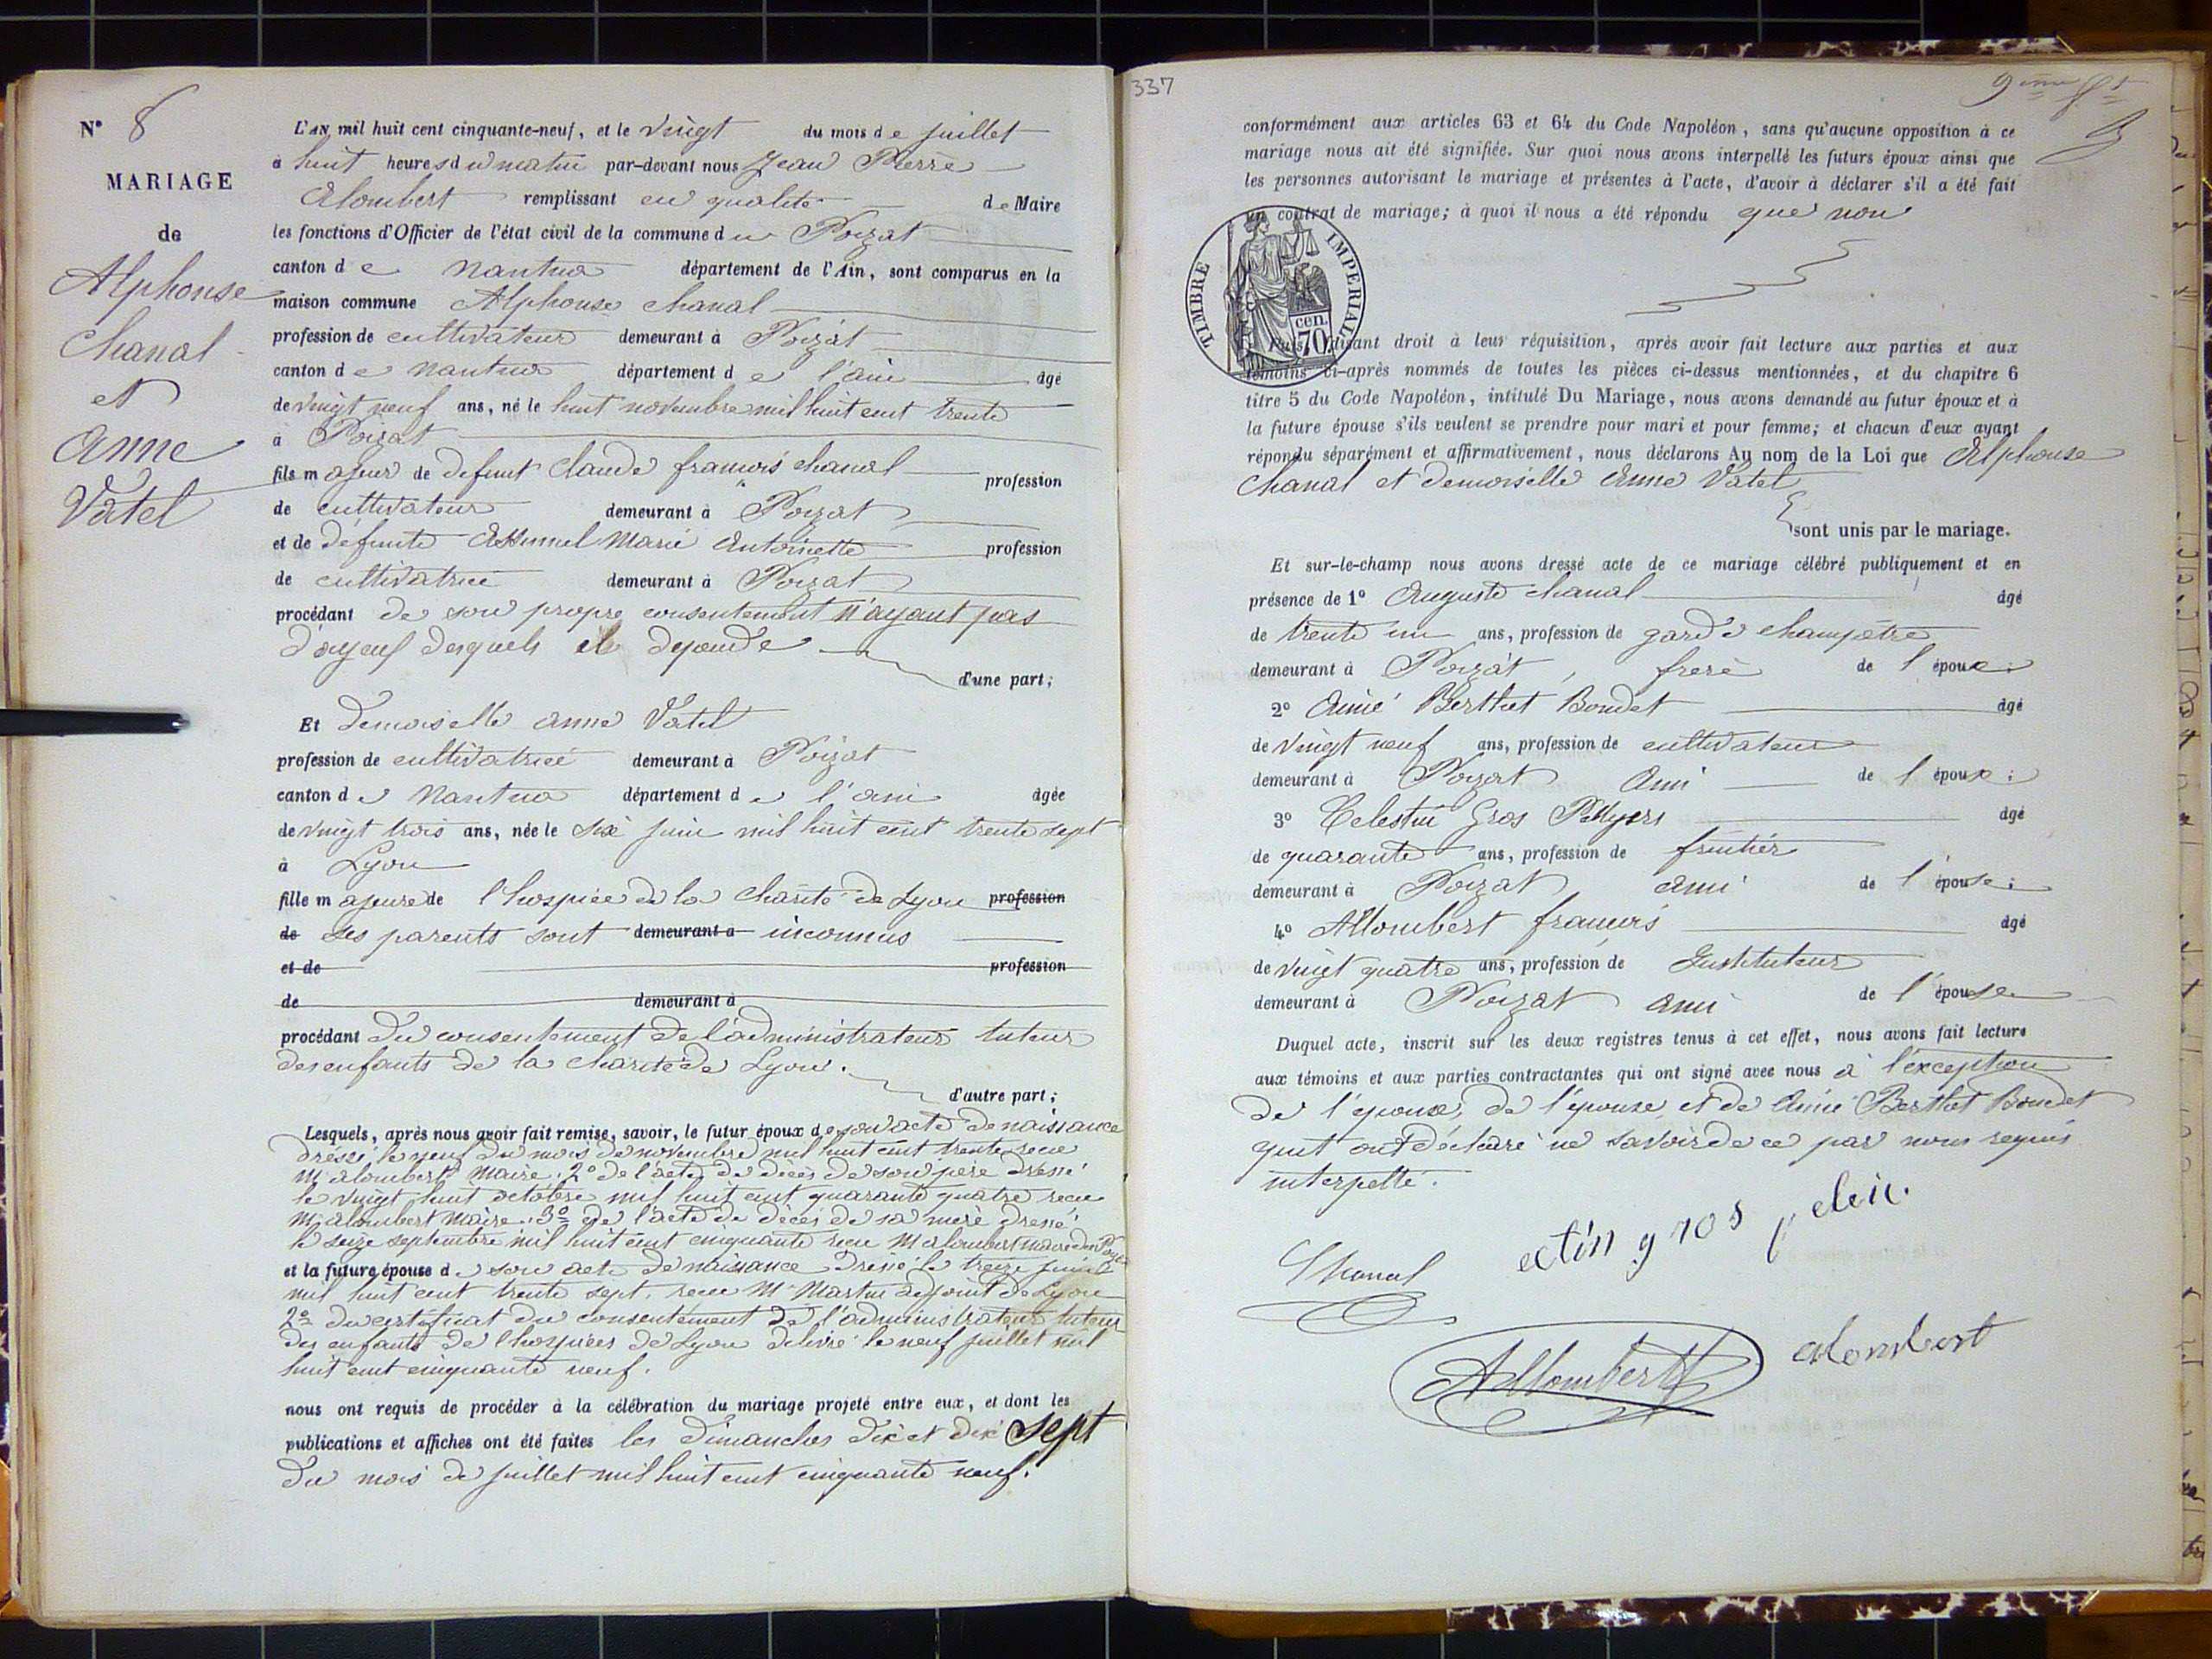 N° 8
MARIAGE
de
Alphonse
Chanal
et
Anne
Vatel
L'AN mil huit cent cinquante-neuf, et le vingt du mois de juillet
à huit heures du matin par-devant nous Jean Pierre
Alombert remplissant en qualité de Maire
les fonctions d'Officier de l'état civil de la commune du Poizat
canton de Nantua département de l'Ain, sont comparus en la
maison commune Alphonse Chanal
profession de cultivateur demeurant à Poizat
canton de Nantua département de l'ain âgé
de vingt neuf ans, né le huit novembre mil huit cent trente
à Poizat
fils majeur de defunt Claude francois chanal profession
de cultivateur demeurant à Poizat
et de défunte Marie Antoinette profession
de cultivatrice demeurant à Poizat
procédant de son propre consentement n'ayant pas
d'ayeuf desquels il dépende
d'une part;
Et Demoiselle anne Vatel
profession de cultivatrice demeurant à Poizat
canton de Nantua département de l'ain âgée
de vingt trois ans, née le six juin mil huit cent trente sept
à Lyon
fille majeure de l'hospice de la Charité de Lyon profession
de Ses parents sont demeurant à inconnus
et de profession
de demeurant à
procédant du consentement de l'administrateur tuteur
des enfants de la charité de Lyon.
d'autre part;
Lesquels, après nous avoir fait remise, savoir, le futur époux de son acte de naissance
dressé le neuf du mois de novembre mil huit cent trente recu
Mr alombert Maire. 2° de l'acte de décès de son père dressé
le vingt huit octobre mil huit cent quarante quatre recu
Mr alombert Maire. 3° de l'acte de décès de sa mère dressé
le seize septembre mil huit cent cinquante recu Mr alombert maire du
et la future épouse de son acte de naissance dressé le treize juin
mil huit cent trente sept. recu Mr Martin adjoint de Lyon
2° du certificat du consentement de l'administrateur tuteur
des enfants de l'hospices de Lyon delivré le neuf juillet mil
huit cent cinquante neuf.
nous ont requis de procéder à la célébration du mariage projeté entre eux, et dont les
publications et affiches ont été faites les dimanches dix et dix sept
du mois de juillet mil huit cent cinquante neuf.
337
conformément aux articles 63 et 64 du Code Napoléon, sans qu'aucune opposition à ce
mariage nous ait été signifiée. Sur quoi nous avons interpellé les futurs époux ainsi que
les personnes autorisant le mariage et présentes à l'acte, d'avoir à déclarer s'il a été fait
un contrat de mariage; à quoi il nous a été répondu que non
TIMBRE IMPERIAL
cen.
70
Puis, faisant droit à leur réquisition, après avoir fait lecture aux parties et aux
témoins ci-après nommés de toutes les pièces ci-dessus mentionnées, et du chapitre 6
titre 5 du Code Napoléon, intitulé Du Mariage, nous avons demandé au futur époux et à
la future épouse s'ils veulent se prendre pour mari et pour femme; et chacun d'eux ayant
répondu séparément et affirmativement, nous déclarons Au nom de la Loi que Alphonse
Chanal et demoiselle Anne Vatel
sont unis par le mariage.
Et sur-le-champ nous avons dressé acte de ce mariage célébré publiquement et en
présence de 1° Auguste chanal âgé
de trente un ans, profession de garde champêtre
demeurant à Poizat, frere de l'époux;
2° Aimé Berthet Bondet âgé
de vingt neuf ans, profession de cultivateur
demeurant à Poizat ami de l'époux;
3° Celestin Gros âgé
de quarante ans, profession de fruitier
demeurant à Poizat ami de l'épouse;
4° Allombert francois âgé
de vingt quatre ans, profession de Instituteur
demeurant à Poizat ami de l'épouse
Duquel acte, inscrit sur les deux registres tenus à cet effet, nous avons fait lecture
aux témoins et aux parties contractantes qui ont signé avec nous à l'exception
de l'époux, de l'épouse et de Aimé Berthet Bondet
qui ont déclaré ne savoir de ce par nous requis
interpellé.
Chanal
gros
Allombert
alombert